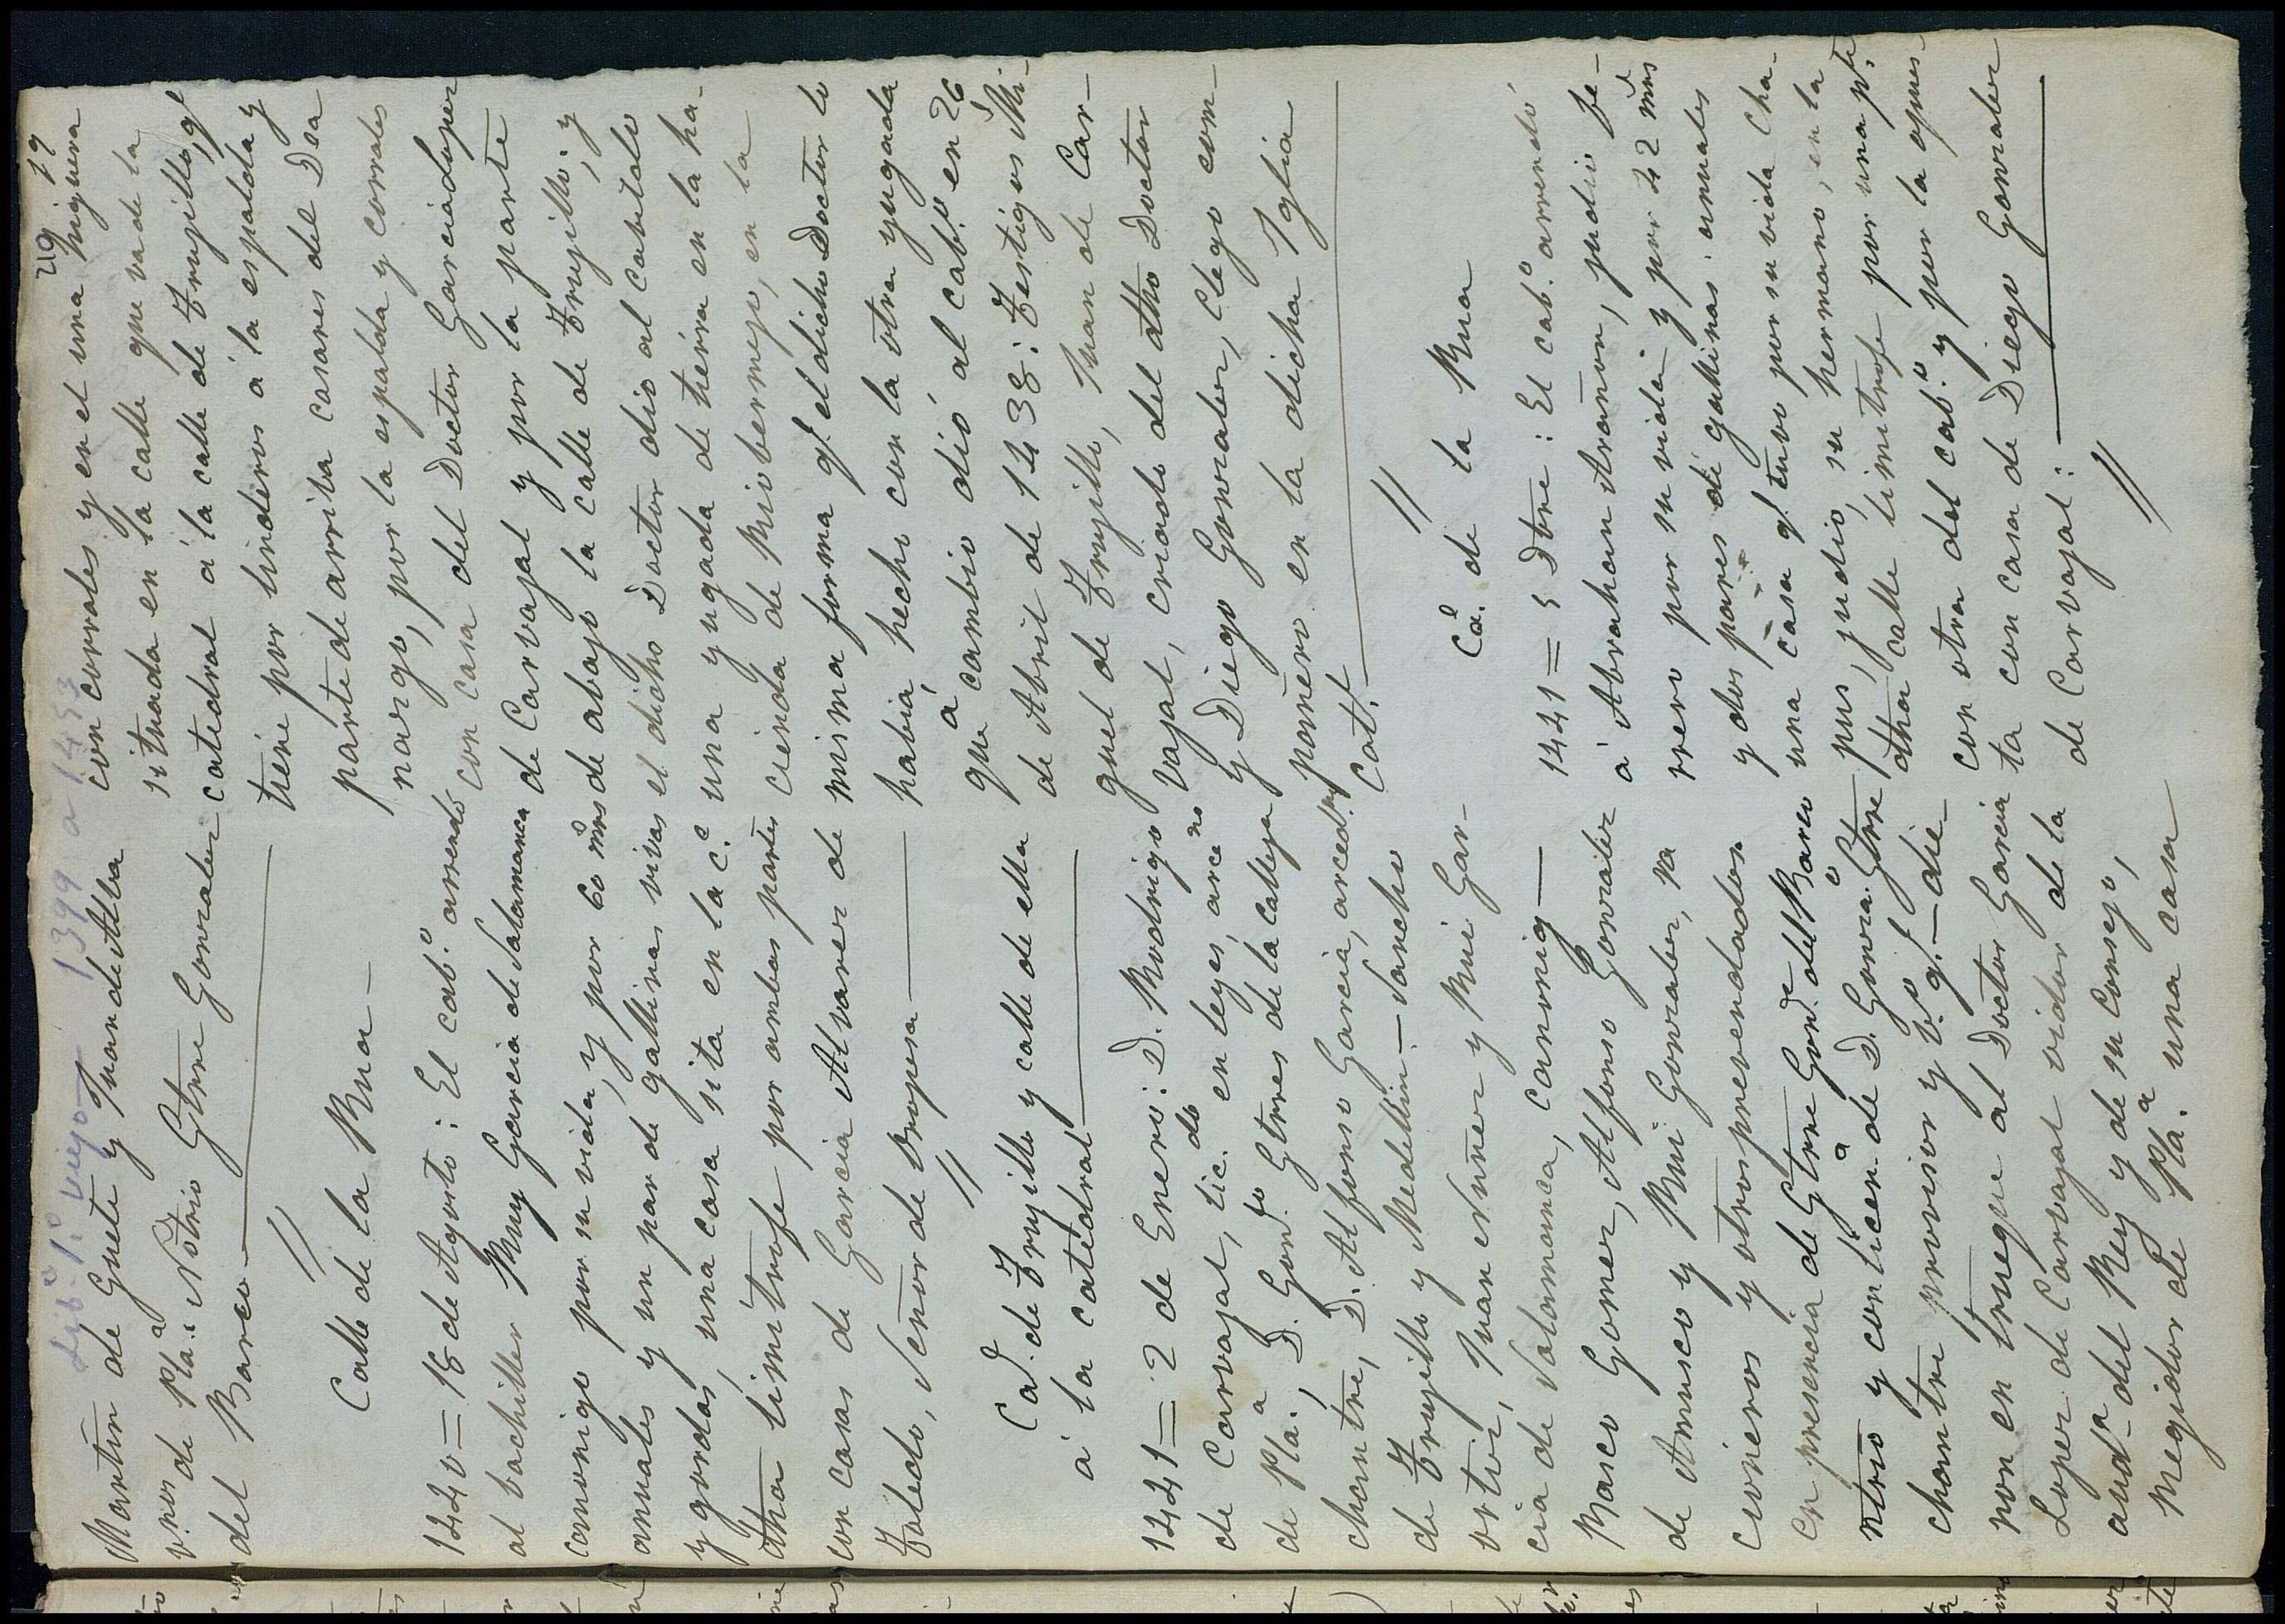 Lib.º 1.º viejo — 1399 a 1453
19 19
Martin de Guete y Juan de Alba
v.nos de Pla.ª Notrio Gtrre Gonzalez
del Barco
//
Calle de la Rua —
1440 = 18 de Agosto: El cab.º arrendó
al bachiller Ruy Garcia de Salamanca
canonigo por su vida, y por 60 mrs
annales y un par de gallinas vivas
y gordas, una casa sita en la c.e
dha limitrofe por ambas partes
con casas de Garcia Alvarez de
Toledo, Señor de Oropesa
//
Ca.l de Trujillo y calle de ella
á la catedral
1441 = 2 de Enero: D. Rodrigo
de Carvajal, lic.do en leyes, arce.no
de Pla.ª, D. Gon.lo Gtrres de la Calleja
chantre, D. Alfonso Garcia, arced.no
de Trujillo y Medellin — Sancho
Ortiz, Juan Nuñez y Rui Gar-
cia de Salamanca, canonig —
Blasco Gomez, Alfonso Gonzalez
de Amusco y Rui Gonzalez, ra
cioneros y otros prevendados
en presencia de Gtrre Gon.z del Barco
ntrio y con licen.ª de D. Gonza.º Gtrre
chantre provisor y v.º g.l — die-
ron en trueque al Doctor Garcia
Lopez de Carvajal oidor de la
aud.ª del Rey y de su Consejo,
Regidor de Pla.ª una casa
con corrales y en el una higuera
situada en la calle que va de la
catedral á la calle de Trujillo, q.l
tiene por linderos á la espalda y
parte de arriba casares del Dea
nazgo, por la espalda y corrales
con casa del Doctor Garcia Lopez
de Carvajal y por la parte
de abajo la calle de Trujillo; y
el dicho Doctor dio al cabildo
una yugada de tierra en la ha-
cienda de Miobermejo, en la
misma forma q.e el dicho Doctor lo
habia hecho con la otra yugada
que á cambio dió al cab.º en 26
de Abril de 1438: Testigos Mi-
guel de Trujillo, Juan de Car-
vajal, criado del dho Doctor
y Diego Gonzalez, Clego com-
pañero en la dicha Iglia
Cat.l
//
Ca.e de la Rua
1441 = 5 Dbre: El cab.º arrendó
á Abrahan Arañon, judio he-
rrero por su vida y por 42 mrs
y dos pares de gallinas annales
una casa q.e tuvo por su vida Cha-
pus, judio, su hermano, en la
dha calle limitrofe por una p.te
con otra del cab.º y por la opues-
ta con casa de Diego Gonzalez
de Carvajal:
//